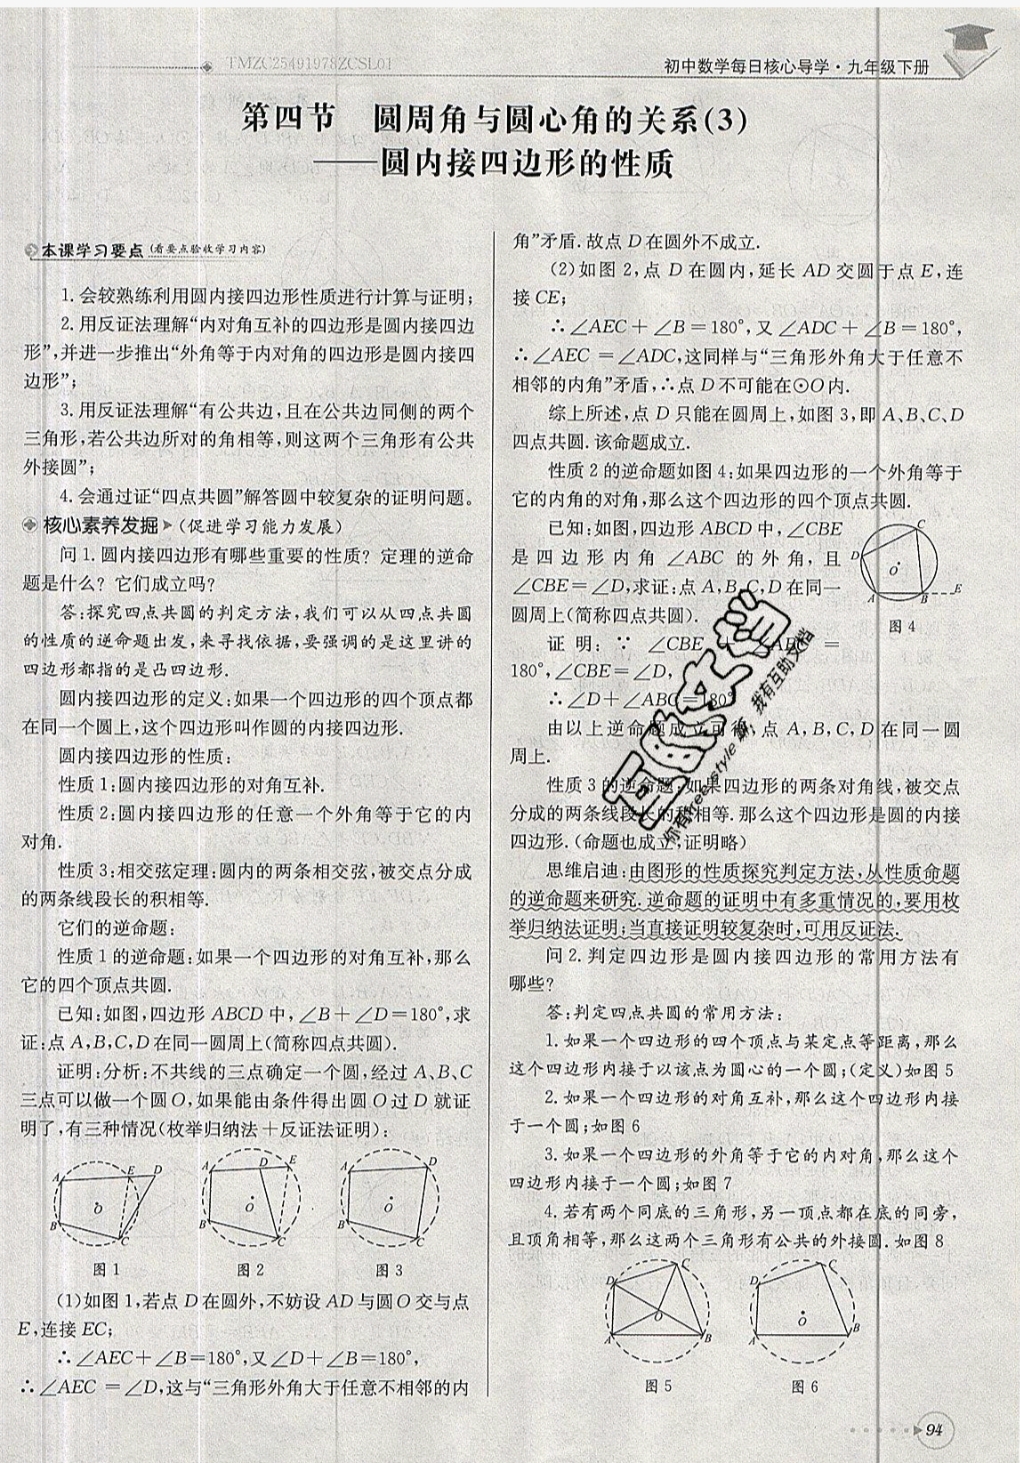 TMZC25491978ZCSL01
初中数学每日核心导学·九年级下册
第四节 圆周角与圆心角的关系(3)
——圆内接四边形的性质
本课学习要点(看要点验收学习内容)
1.会较熟练利用圆内接四边形性质进行计算与证明;
2.用反证法理解“内对角互补的四边形是圆内接四边
形”,并进一步推出“外角等于内对角的四边形是圆内接四
边形”;
3.用反证法理解“有公共边,且在公共边同侧的两个
三角形,若公共边所对的角相等,则这两个三角形有公共
外接圆”;
4.会通过证“四点共圆”解答圆中较复杂的证明问题。
核心素养发掘(促进学习能力发展)
问1.圆内接四边形有哪些重要的性质? 定理的逆命
题是什么? 它们成立吗?
答:探究四点共圆的判定方法,我们可以从四点共圆
的性质的逆命题出发,来寻找依据,要强调的是这里讲的
四边形都指的是凸四边形.
圆内接四边形的定义:如果一个四边形的四个顶点都
在同一个圆上,这个四边形叫作圆的内接四边形.
圆内接四边形的性质:
性质1:圆内接四边形的对角互补.
性质2:圆内接四边形的任意一个外角等于它的内
对角.
性质3:相交弦定理:圆内的两条相交弦,被交点分成
的两条线段长的积相等.
它们的逆命题:
性质1的逆命题:如果一个四边形的对角互补,那么
它的四个顶点共圆.
已知:如图,四边形ABCD中,∠B+∠D=180°,求
证:点A,B,C,D在同一圆周上(简称四点共圆).
证明:分析:不共线的三点确定一个圆,经过A、B、C
三点可以做一个圆O,如果能由条件得出圆O过D就证
明了,有三种情况(枚举归纳法+反证法证明):
A E D B O C
A D E B O C
A D B O C
图1 图2 图3
(1)如图1,若点D在圆外,不妨设AD与圆O交与点
E,连接EC;
∴∠AEC+∠B=180°,又∠D+∠B=180°,
∴∠AEC=∠D,这与“三角形外角大于任意不相邻的内
角”矛盾.故点D在圆外不成立.
(2)如图2,点D在圆内,延长AD交圆于点E,连
接CE;
∴∠AEC+∠B=180°,又∠ADC+∠B=180°,
∴∠AEC=∠ADC,这同样与“三角形外角大于任意不
相邻的内角”矛盾,∴点D不可能在⊙O内.
综上所述,点D只能在圆周上,如图3,即A、B、C、D
四点共圆.该命题成立.
性质2的逆命题如图4:如果四边形的一个外角等于
它的内角的对角,那么这个四边形的四个顶点共圆.
已知:如图,四边形ABCD中,∠CBE
是四边形内角∠ABC的外角,且
∠CBE=∠D,求证:点A,B,C,D在同一
圆周上(简称四点共圆).
C D O A B E
图4
证明:∵ ∠CBE + ∠ABC =
180°,∠CBE=∠D,
∴∠D+∠ABC=180°
由以上逆命题成立可得,点A,B,C,D在同一圆
周上.
性质3的逆命题:如果四边形的两条对角线,被交点
分成的两条线段长的积相等.那么这个四边形是圆的内接
四边形.(命题也成立,证明略)
思维启迪:由图形的性质探究判定方法,从性质命题
的逆命题来研究.逆命题的证明中有多重情况的,要用枚
举归纳法证明;当直接证明较复杂时,可用反证法.
问2.判定四边形是圆内接四边形的常用方法有
哪些?
答:判定四点共圆的常用方法:
1.如果一个四边形的四个顶点与某定点等距离,那么
这个四边形内接于以该点为圆心的一个圆;(定义)如图5
2.如果一个四边形的对角互补,那么这个四边形内接
于一个圆;如图6
3.如果一个四边形的外角等于它的内对角,那么这个
四边形内接于一个圆;如图7
4.若有两个同底的三角形,另一顶点都在底的同旁,
且顶角相等,那么这两个三角形有公共的外接圆.如图8
D C O A B
D C O A B
图5 图6
94
你有free style 嘛, 我有互助文档